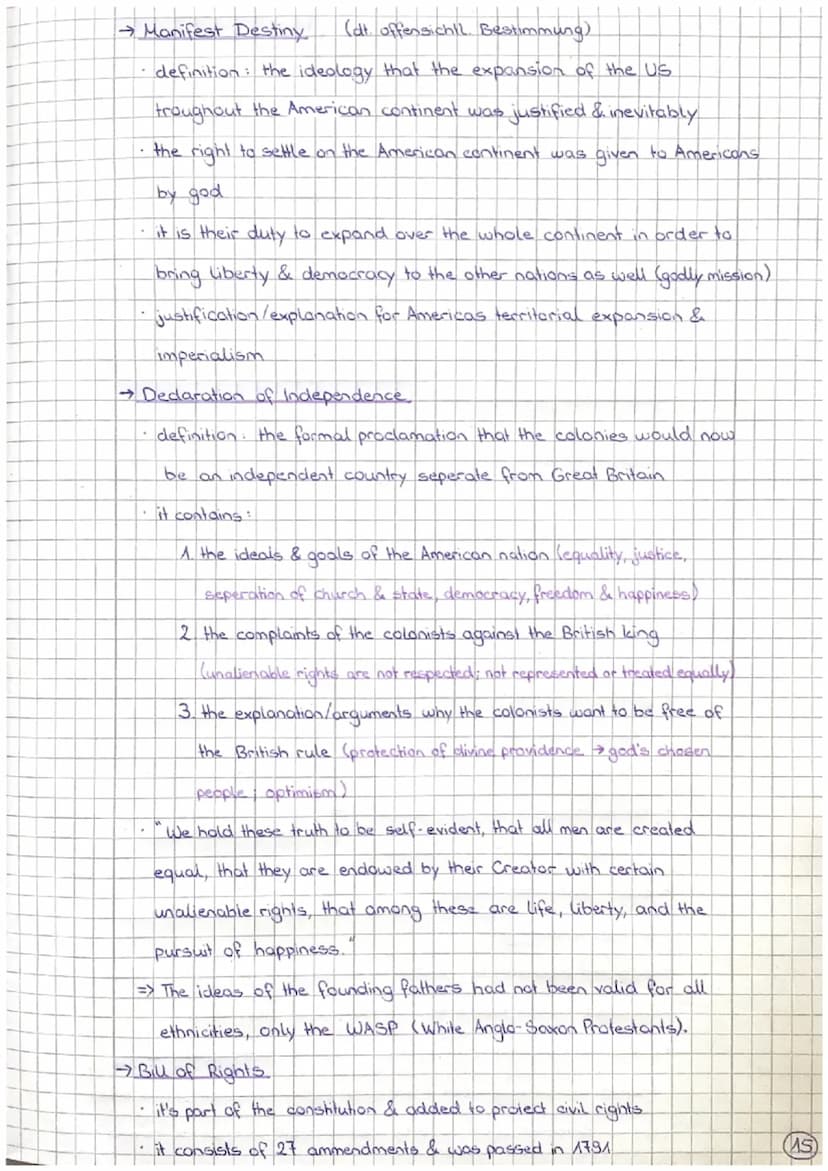 → Manifest Destiny (dt. offensichtl. Bestimmung)
· definition: the ideology that the expansion of the US
troughout the American continent was justified & inevitably
· the right to settle on the American continent was given to Americans
by god
· it is their duty to expand over the whole continent in order to
bring liberty & democracy to the other nations as well (godly mission)
· justification/explanation for Americas territorial expansion &
imperialism
→ Declaration of Independence
· definition: the formal proclamation that the colonies would now
be an independent country seperate from Great Britain
· it contains:
1. the ideals & goals of the American nation (equality, justice,
seperation of church & state, democracy, freedom & happiness)
2. the complaints of the colonists against the British king
(unalienable rights are not respected; not represented or treated equally)
3. the explanation/arguments why the colonists want to be free of
the British rule (protection of divine providence → god's chosen
people; optimism)
· "We hold these truth to be self-evident, that all men are created
equal, that they are endowed by their Creator with certain
unalienable rights, that among these are life, liberty, and the
pursuit of happiness."
=> The ideas of the founding fathers had not been valid for all
ethnicities, only the WASP (White Anglo-Saxon Protestants).
→ Bill of Rights
· it's part of the constitution & added to protect civil rights
· it consists of 27 ammendments & was passed in 1791
15